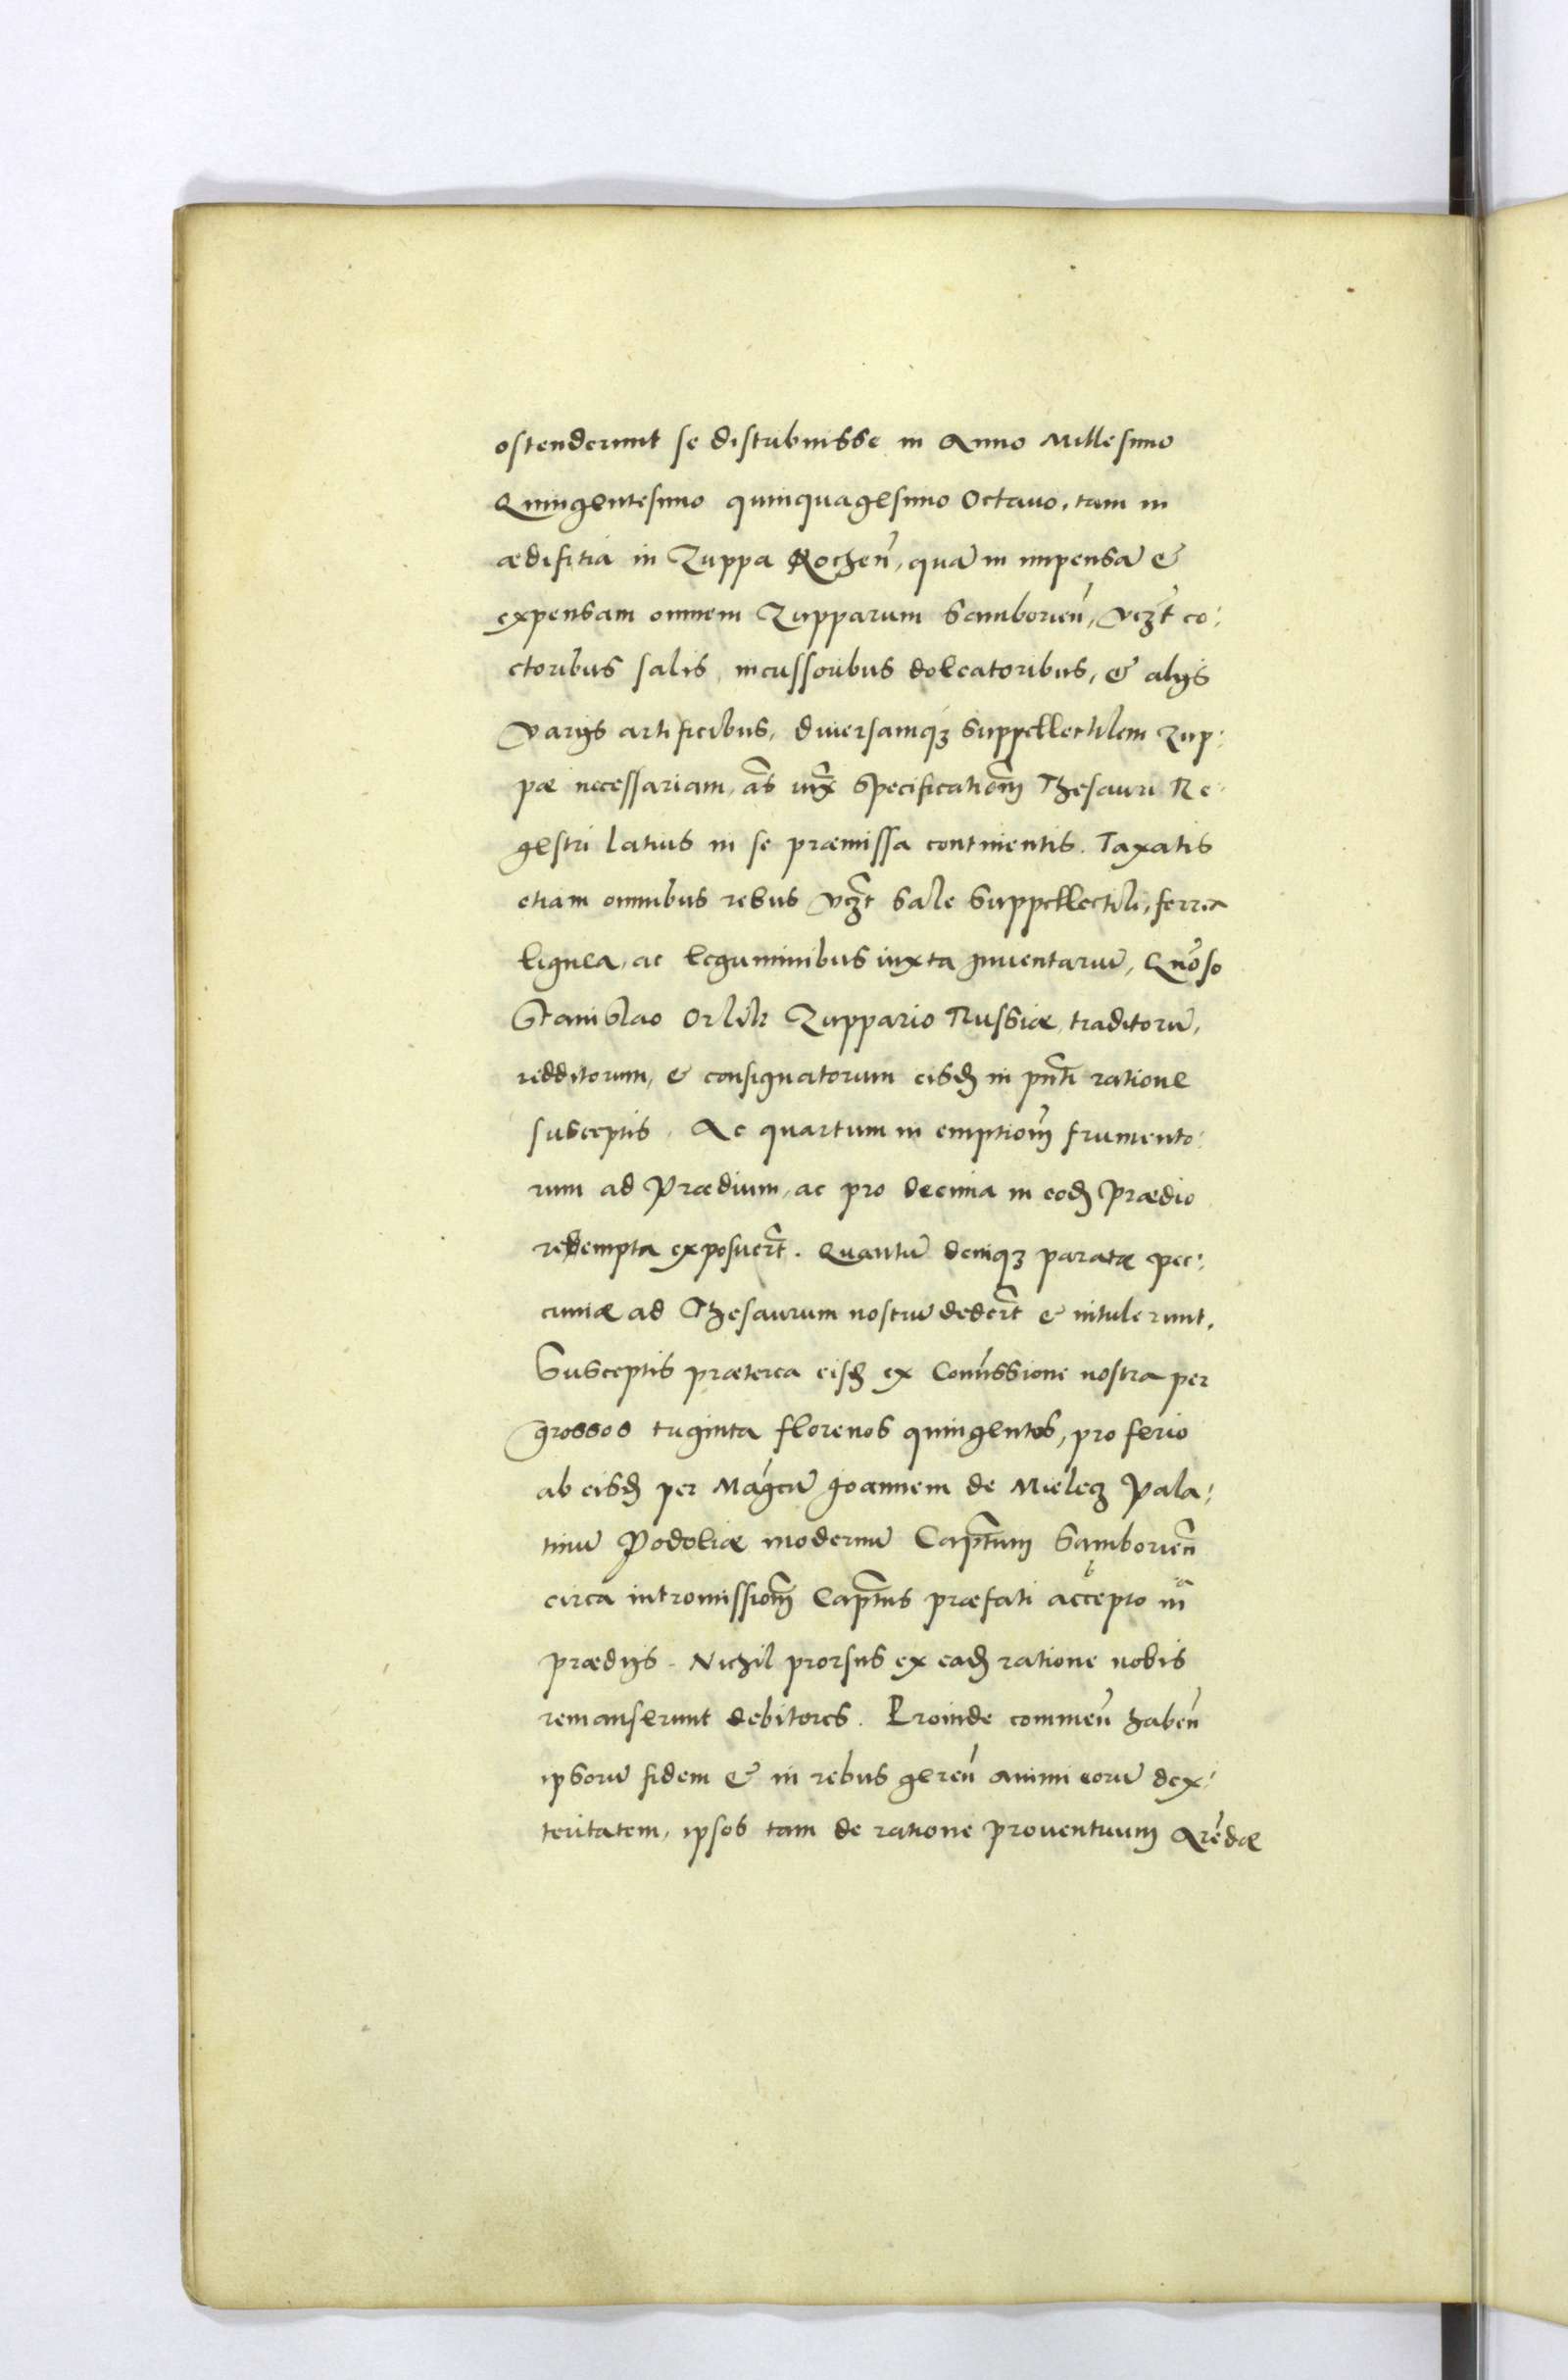 ostenderunt se distribuisse in Anno Millesimo
Quingentesimo quinquagesimo Octavo, tam in
ædifitia in Zuppa Koczen̄, quā in impensā &
expensam omnem Zupparum Samborien̄, vcz̄t co:
ctoribus salis, incussoribus doleatoribus, & alijs
varijs artificibus, diversamq; suppellectilem Zup:
pæ necessariam, ac̄ iux̄ specificatiōm Thesauri Re:
gestri latius in se præmissa continentis. Taxatis
etiam omnibus rebus vcz̄t sale suppellectili, ferrea
lignea, ac leguminibus iuxta Inventariū, Gn̄oso
Stanislao Orlik Zuppario Russiæ, traditorū,
redditorum, & consignatorum eisd̄ in pn̄ti ratione
susceptis. Ac quartum in emptiōm frumento:
rum ad Prædium, ac pro decima in eod̄ Prædio
redempta exposuer̄t. Quantū deniq; paratæ pec:
cuniæ ad Thesaurum nostrū deder̄t & intulerunt.
Susceptis præterea eisd̄ ex Com̄issione nostra per
grossos triginta florenos quingentos, pro ferio
ab eisd̄ per Maḡcū Ioannem de Mielecz Pala:
tinū Podoliæ modernū Cap̄tum Samborien̄
circa intromissiōm Cap̄tus præfati accepto in
prædijs. Nichil prorsus ex ead̄ ratione nobis
remanserunt debitores. Proinde commen̄ haben̄
ipsorū fidem & in rebus geren̄ animi eorū dex:
teritatem, ipsos tam de ratione proventuum Arēdæ